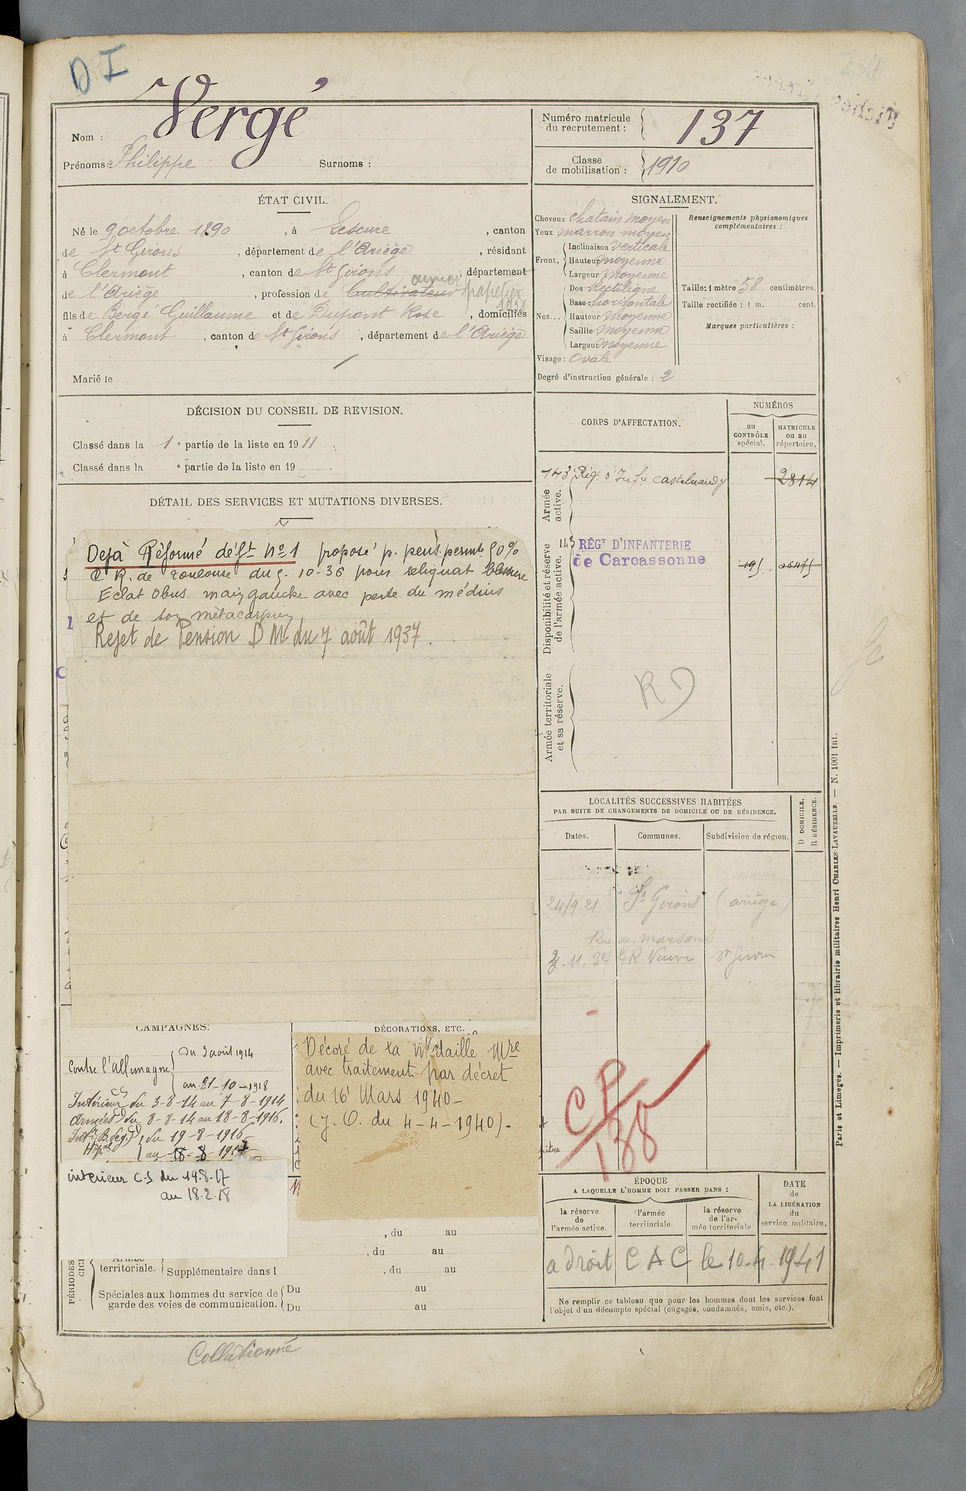 D I
Nom : Vergé
Prénoms : Philippe Surnoms :
Numéro matricule du recrutement : 137
Classe de mobilisation : 1910
ÉTAT CIVIL.
Né le 9 octobre 1890, à Lescure, canton
de St Girons, département de l'Ariège, résidant
à Clermont, canton de St Girons, département
de l'Ariège, profession de Cultivateur papetier
1936
fils de Bergé Guillaume et de Dupont Rose, domiciliés
à Clermont, canton de St Girons, département de l'Ariège
Marié le
SIGNALEMENT.
Cheveux châtain moyen
Yeux marron moyen
Front. Inclinaison verticale
Hauteur moyenne
Largeur moyenne
Nez... Dos Rectiligne
Base horizontale
Hauteur moyenne
Saillie moyenne
Largeur moyenne
Visage : Ovale
Degré d'instruction générale : 2
Renseignements physionomiques complémentaires :
Taille : 1 mètre 58 centimètres.
Taille rectifiée : 1 m. cent.
Marques particulières :
DÉCISION DU CONSEIL DE REVISION.
Classé dans la 1e partie de la liste en 1911.
Classé dans la e partie de la liste en 19
DÉTAIL DES SERVICES ET MUTATIONS DIVERSES.
Dejà Réformé déft No 1 proposé p. pens. permte 50%
C R. de Toulouse du 5. 10-36 pour reliquat blessure
Eclat obus main gauche avec perte du médius
et de son métacarpien
Rejet de Pension D M du 7 août 1937.
CORPS D'AFFECTATION.
NUMÉROS
au CONTRÔLE spécial.
MATRICULE ou au répertoire.
Armée active.
143 Rég. d'Infie Castelnaudy 2814
Disponibilité et réserve de l'armée active.
143 RÉGt D'INFANTERIE
de Carcassonne
Armée territoriale et sa réserve.
R D
LOCALITÉS SUCCESSIVES HABITÉES
PAR SUITE DE CHANGEMENTS DE DOMICILE OU DE RÉSIDENCE.
Dates. Communes. Subdivision de région.
D DOMICILE.
R RÉSIDENCE.
24/9 21 St Girons (ariège)
Rue du marsan
St Girons
CP
138
CAMPAGNES:
Contre l'Allemagne
Du 3 août 1914
au 21-10-1918
Intérieur du 3-8-14 au 7-8-1914
Armées du 8-8-14 au 18-8-1916.
du 19-8-1916
au 18-8-1917
intérieur C.S du 19.8.17
au 18.2.18
DÉCORATIONS, ETC.
Décoré de la Médaille Mre
avec traitement par décret
du 16 Mars 1940-
(J. O. du 4-4-1940)-
ÉPOQUE
A LAQUELLE L'HOMME DOIT PASSER DANS :
la réserve de l'armée active.
l'armée territoriale.
la réserve de l'armée territoriale
DATE de LA LIBÉRATION du service militaire.
a droit C A C le 10-4-1941
Ne remplir ce tableau que pour les hommes dont les services font
l'objet d'un décompte spécial (engagés, condamnés, omis, etc.).
PÉRIODES
, du au
, du au
territoriale. Supplémentaire dans l , du au
Spéciales aux hommes du service de garde des voies de communication.
Du au
Du au
Collationné
Paris et Limoges. — Imprimerie et librairie militaires Henri CHARLES-LAVAUZELLE. — N. 1001 Int.